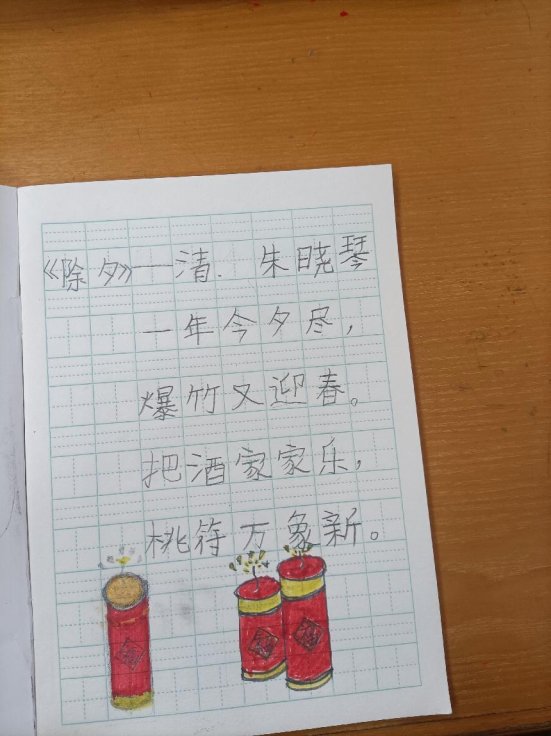 《除夕》—清. 朱晓琴
一年今夕尽，
爆竹又迎春。
把酒家家乐，
桃符万象新。